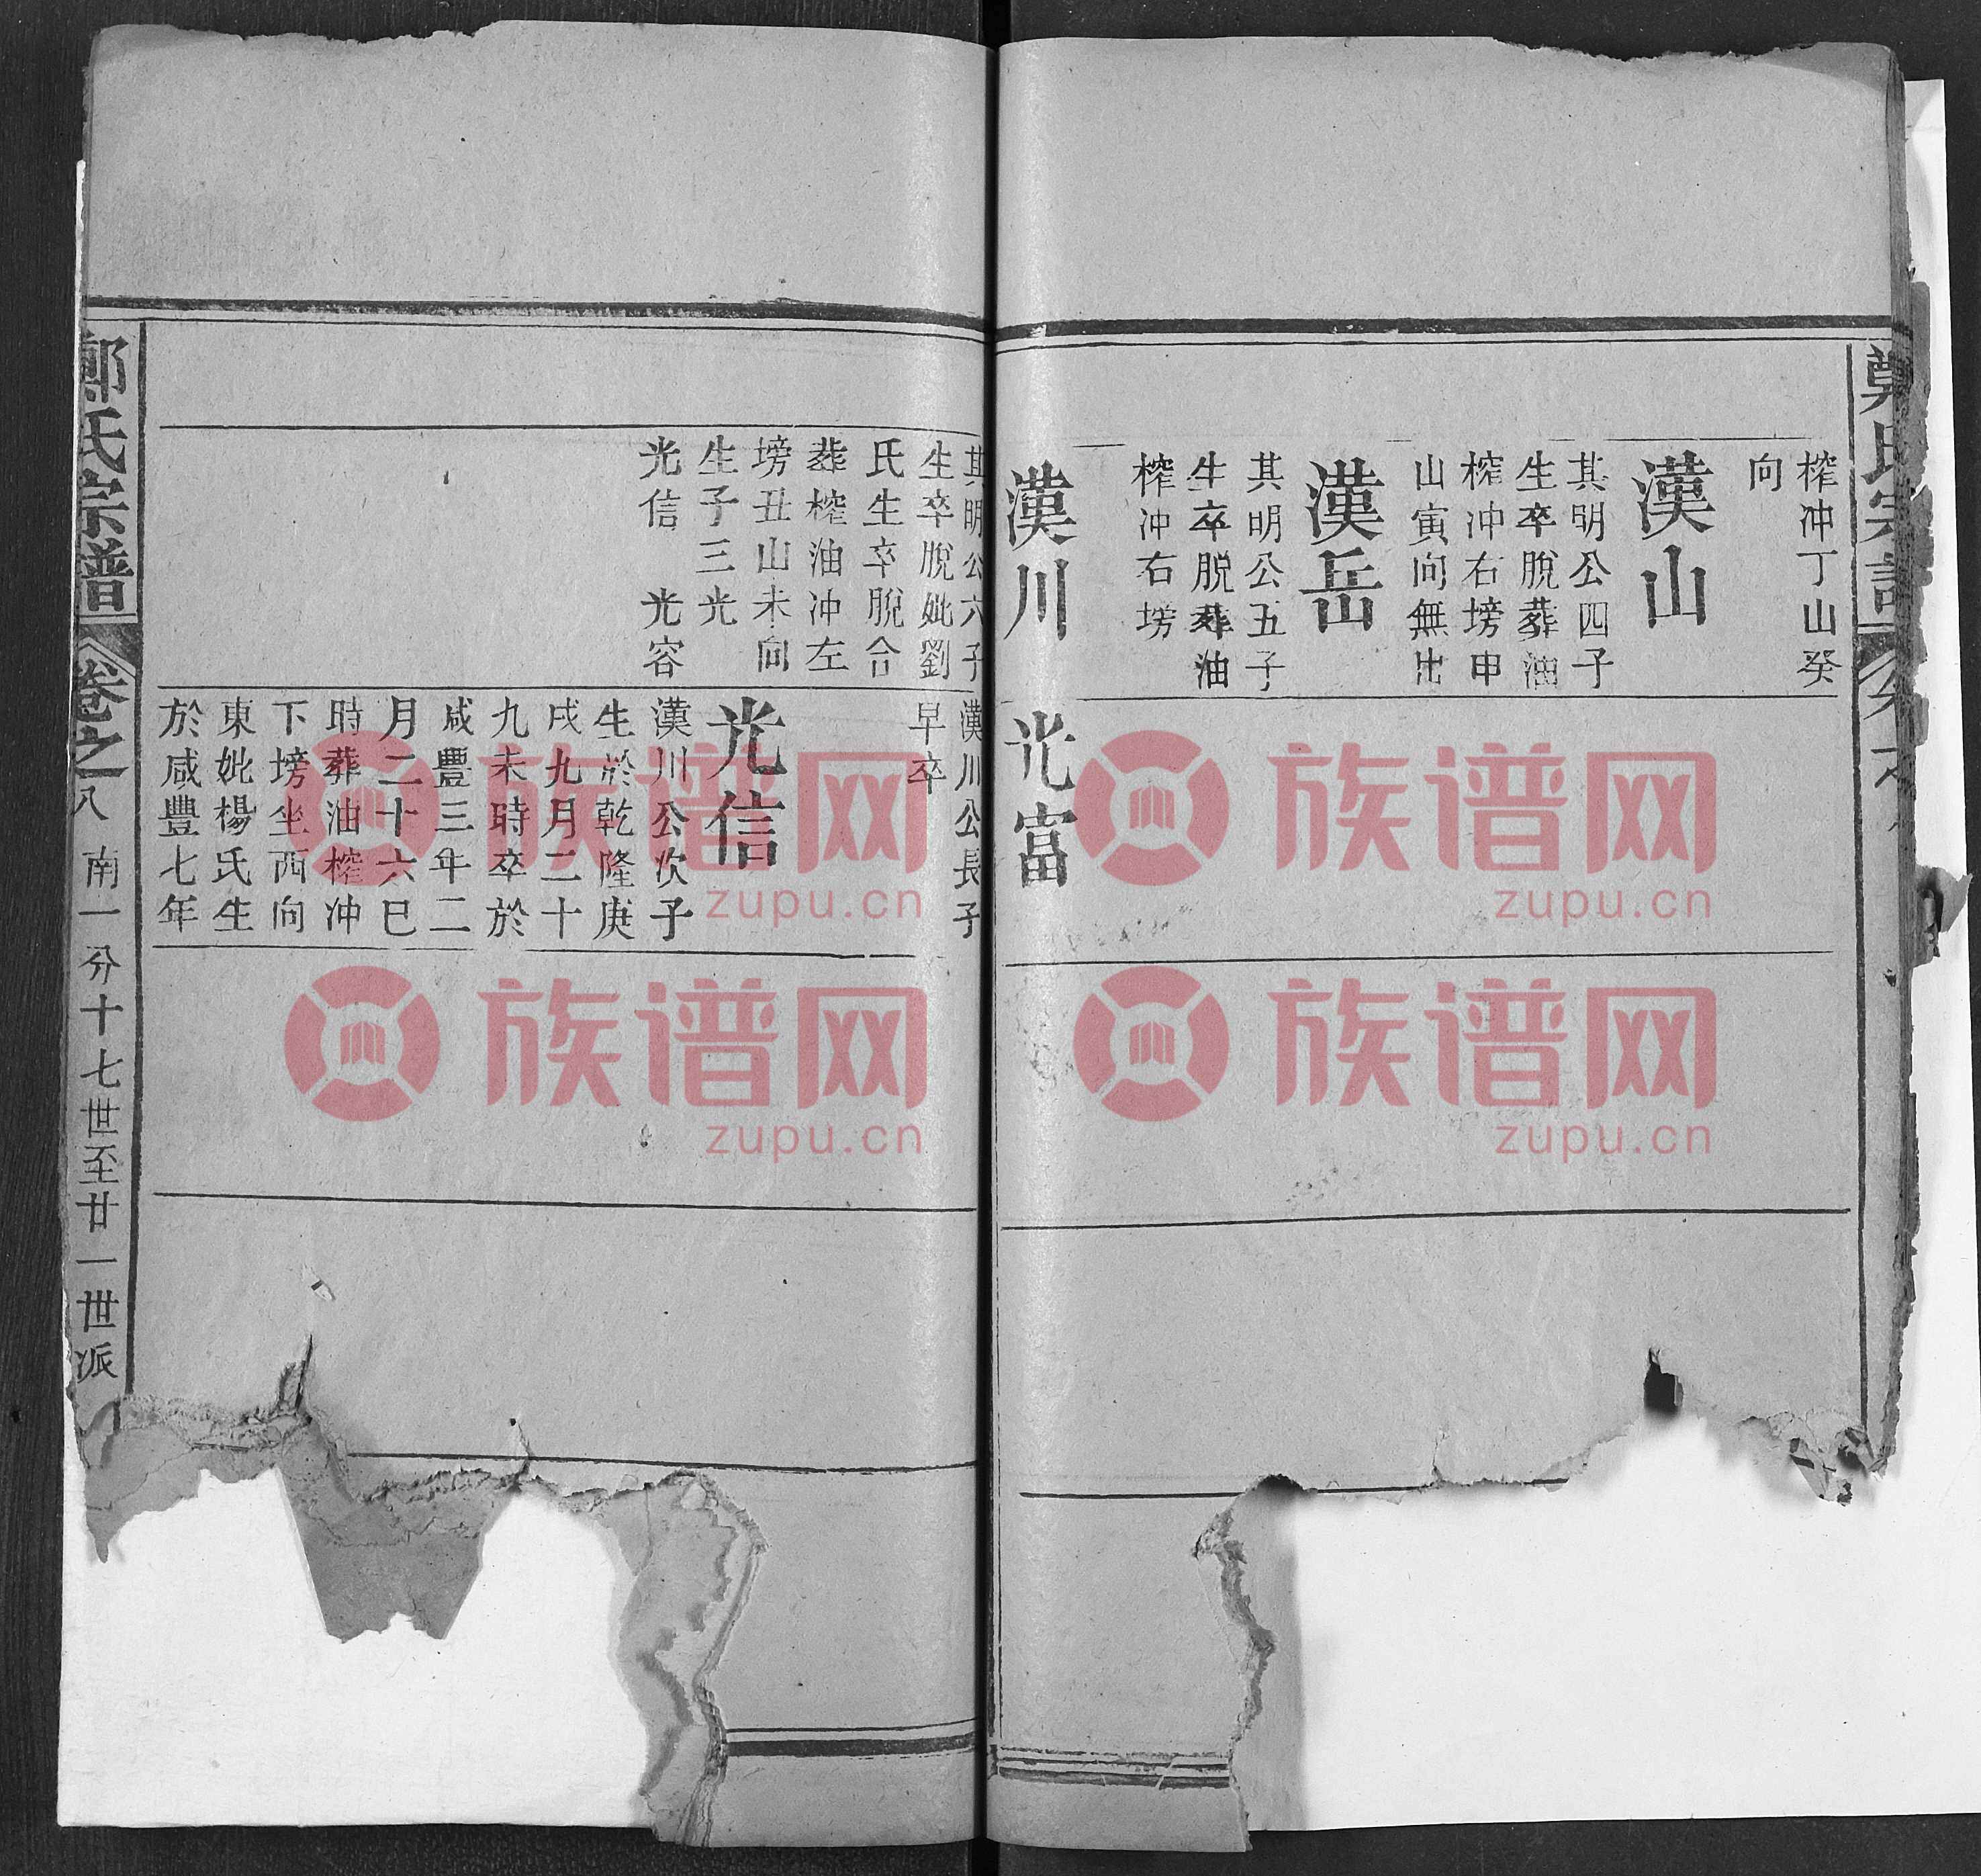 榨冲丁山癸
向
漢山
其明公四子
生卒脫葬油
榨冲右塝申
山寅向無出
漢岳
其明公五子
生卒脫葬油
榨冲右塝
漢川
光富
其明公六子
生卒脫妣劉
氏生卒脫合
葬榨油冲左
塝丑山未向
生子三光
光信 光容
漢川公長子
早卒
光信
漢川公次子
生於乾隆庚
戌九月二十
九未時卒於
咸豐三年二
月二十六巳
時葬油榨冲
下塝坐西向
東妣楊氏生
於咸豐七年
鄭氏宗譜
卷之八
南一分十七世至廿一世派
鄭氏宗
族谱网
zupu.cn
族谱网
zupu.cn
族谱网
zupu.cn
族谱网
zupu.cn